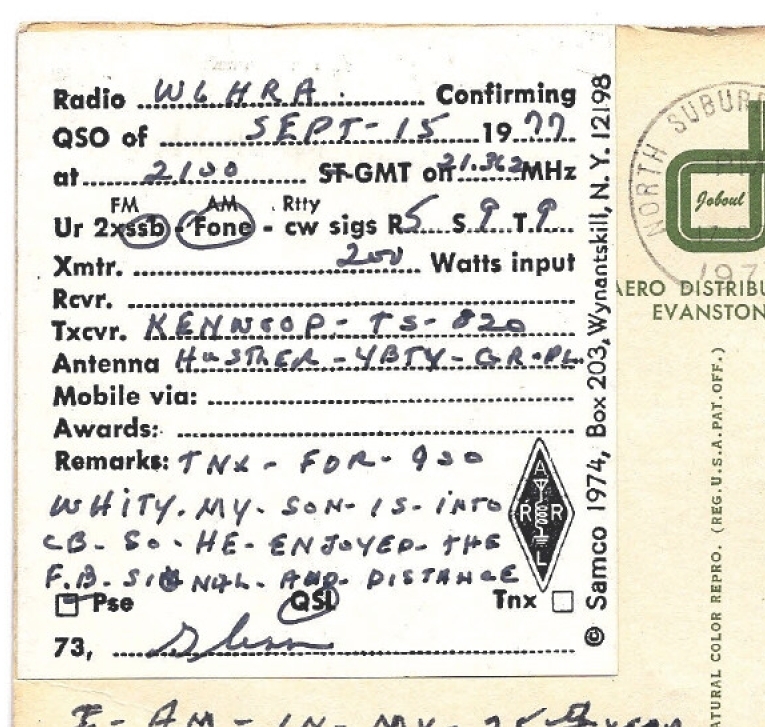 Radio W6HRA. Confirming
QSO of SEPT-15 1977
at 2100 ST-GMT on 21.362 MHz
FM AM Rtty
Ur 2xssb - Fone - cw sigs R5 S9 T9
Xmtr. 200 Watts input
Rcvr.
Txcvr. KENWOOD-TS-820
Antenna HUSTLER-4BTV-GR.PL.
Mobile via:
Awards:
Remarks: TNX-FOR-QSO
WHITY. MY-SON-IS-INTO
CB-SO-HE-ENJOYED-THE
F.B-SIGNAL-AND-DISTANCE
Pse QSL Tnx
73, Glenn
A
R R
L
© Samco 1974, Box 203, Wynantskill, N. Y. 12198
NORTH SUBUR
PM
197
Joboul
AERO DISTRIBU
EVANSTON
NATURAL COLOR REPRO. (REG. U.S.A. PAT. OFF.)
I-AM-IN-MY-25th YEAR